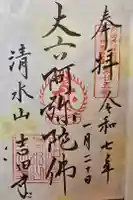 奉拝
令和七年
一月二十日
大六阿弥陀佛
清水山
吉田寺